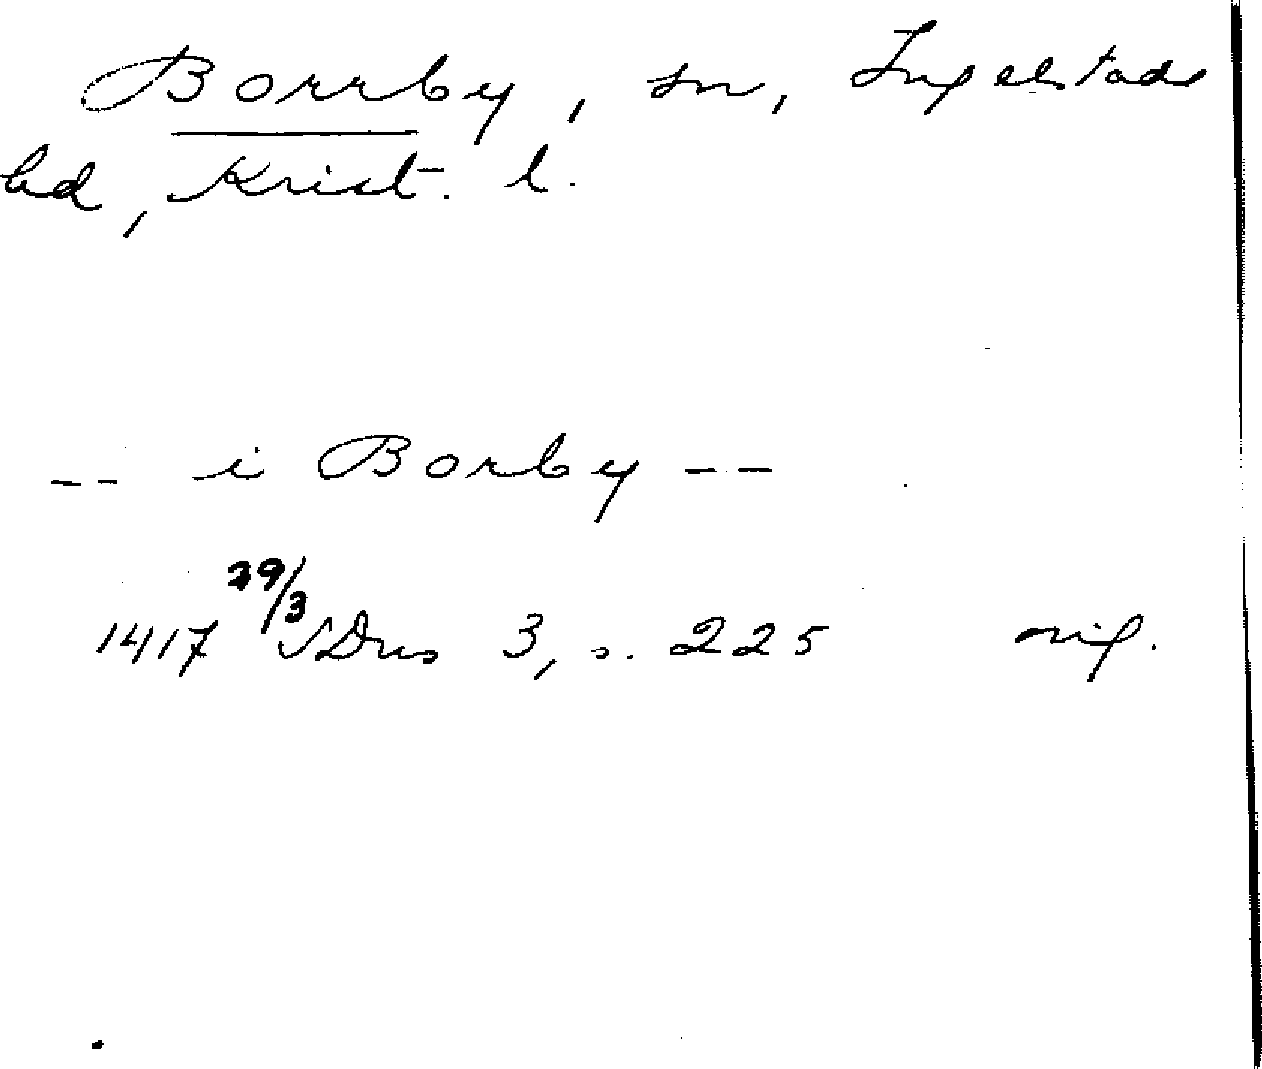 Borrby, sn, Ingelstads
hd, Krist. l.
-- i Borby --
1417 29/3 SDns 3, s. 225 orig.